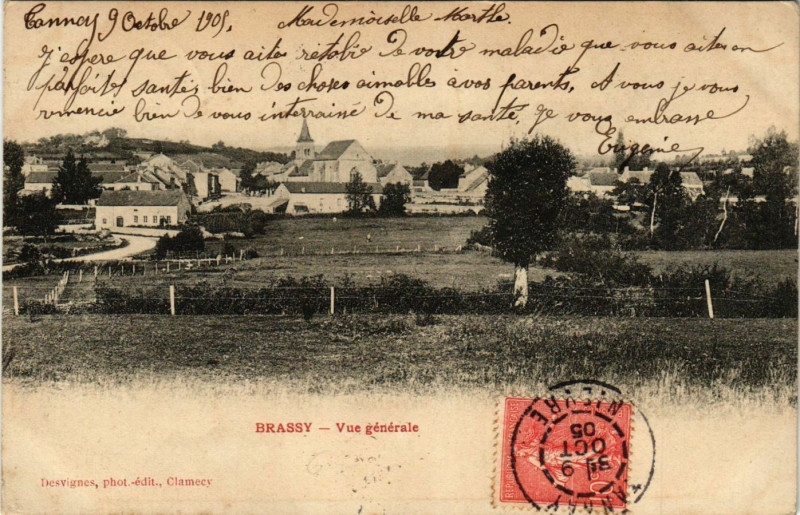 Tannay 9 Octobre 1905, Mademoiselle Marthe.
J'espère que vous aite rétablie De votre maladie que vous aites en
parfaite santé, bien des choses aimables a vos parents, A vous je vous
remercie bien De vous interraissé De ma santé, Je vous embrasse
Eugénie
BRASSY — Vue générale
Desvignes, phot.-édit., Clamecy
TANNAY
NIÈVRE
3E 9
OCT
05